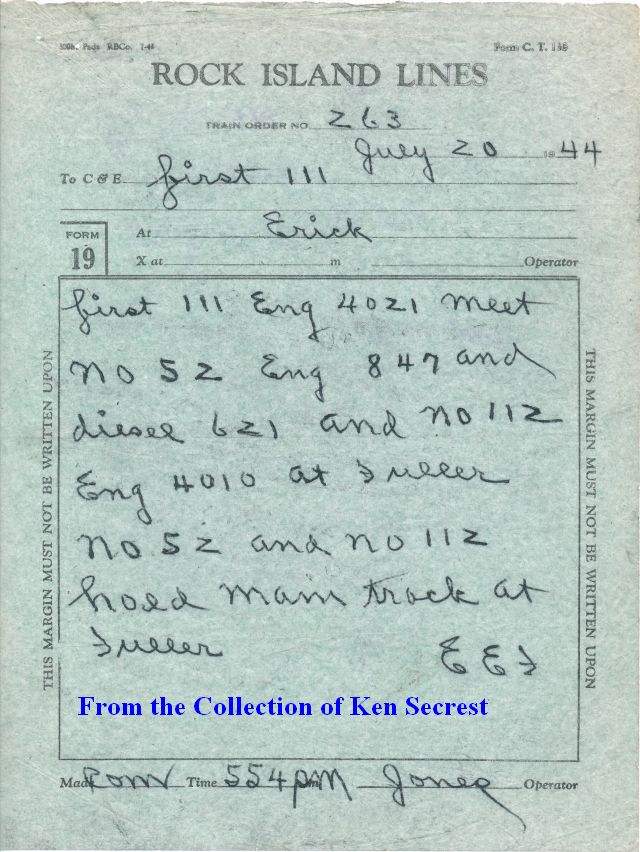 500b. Pads RBCo. 7-44 Form C. T. 138
ROCK ISLAND LINES
TRAIN ORDER NO. 263
July 20 1944
To C & E first 111
FORM
19
At Erick
X at m Operator
first 111 Eng 4021 meet
no 52 Eng 847 and
diesel 621 and no 112
Eng 4010 at Fuller
no 52 and no 112
hold main track at
Fuller EEF
From the Collection of Ken Secrest
Made Com Time 554 pm m Jones Operator
THIS MARGIN MUST NOT BE WRITTEN UPON
THIS MARGIN MUST NOT BE WRITTEN UPON